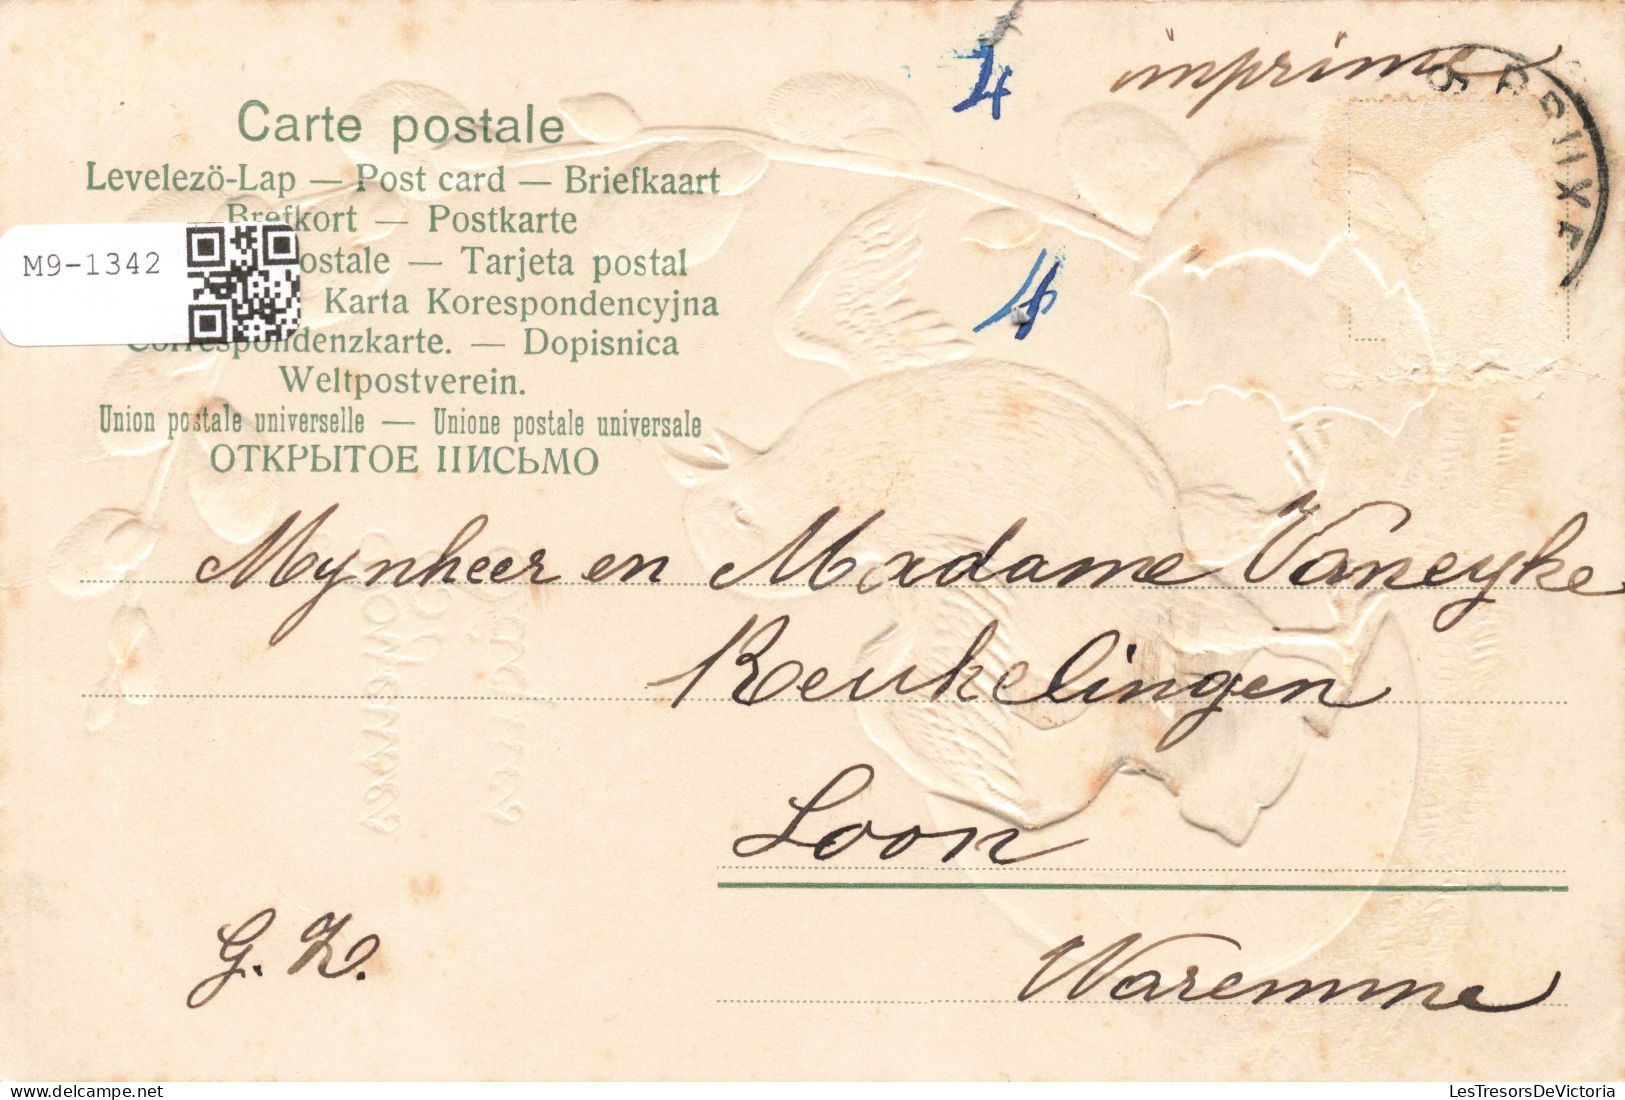 4 imprimé
BRUXE
Carte postale
Levelezö-Lap — Post card — Briefkaart
Brefkort — Postkarte
M9-1342
ostale — Tarjeta postal
Karta Korespondencyjna
4
Correspondenzkarte. — Dopisnica
Weltpostverein.
Union postale universelle — Unione postale universale
ОТКРЫТОЕ ПИСЬМО
Mynheer en Madame Vaneyke
Reukelingen
Loon
G. Z.
Waremme
LesTresorsDeVictoria.com